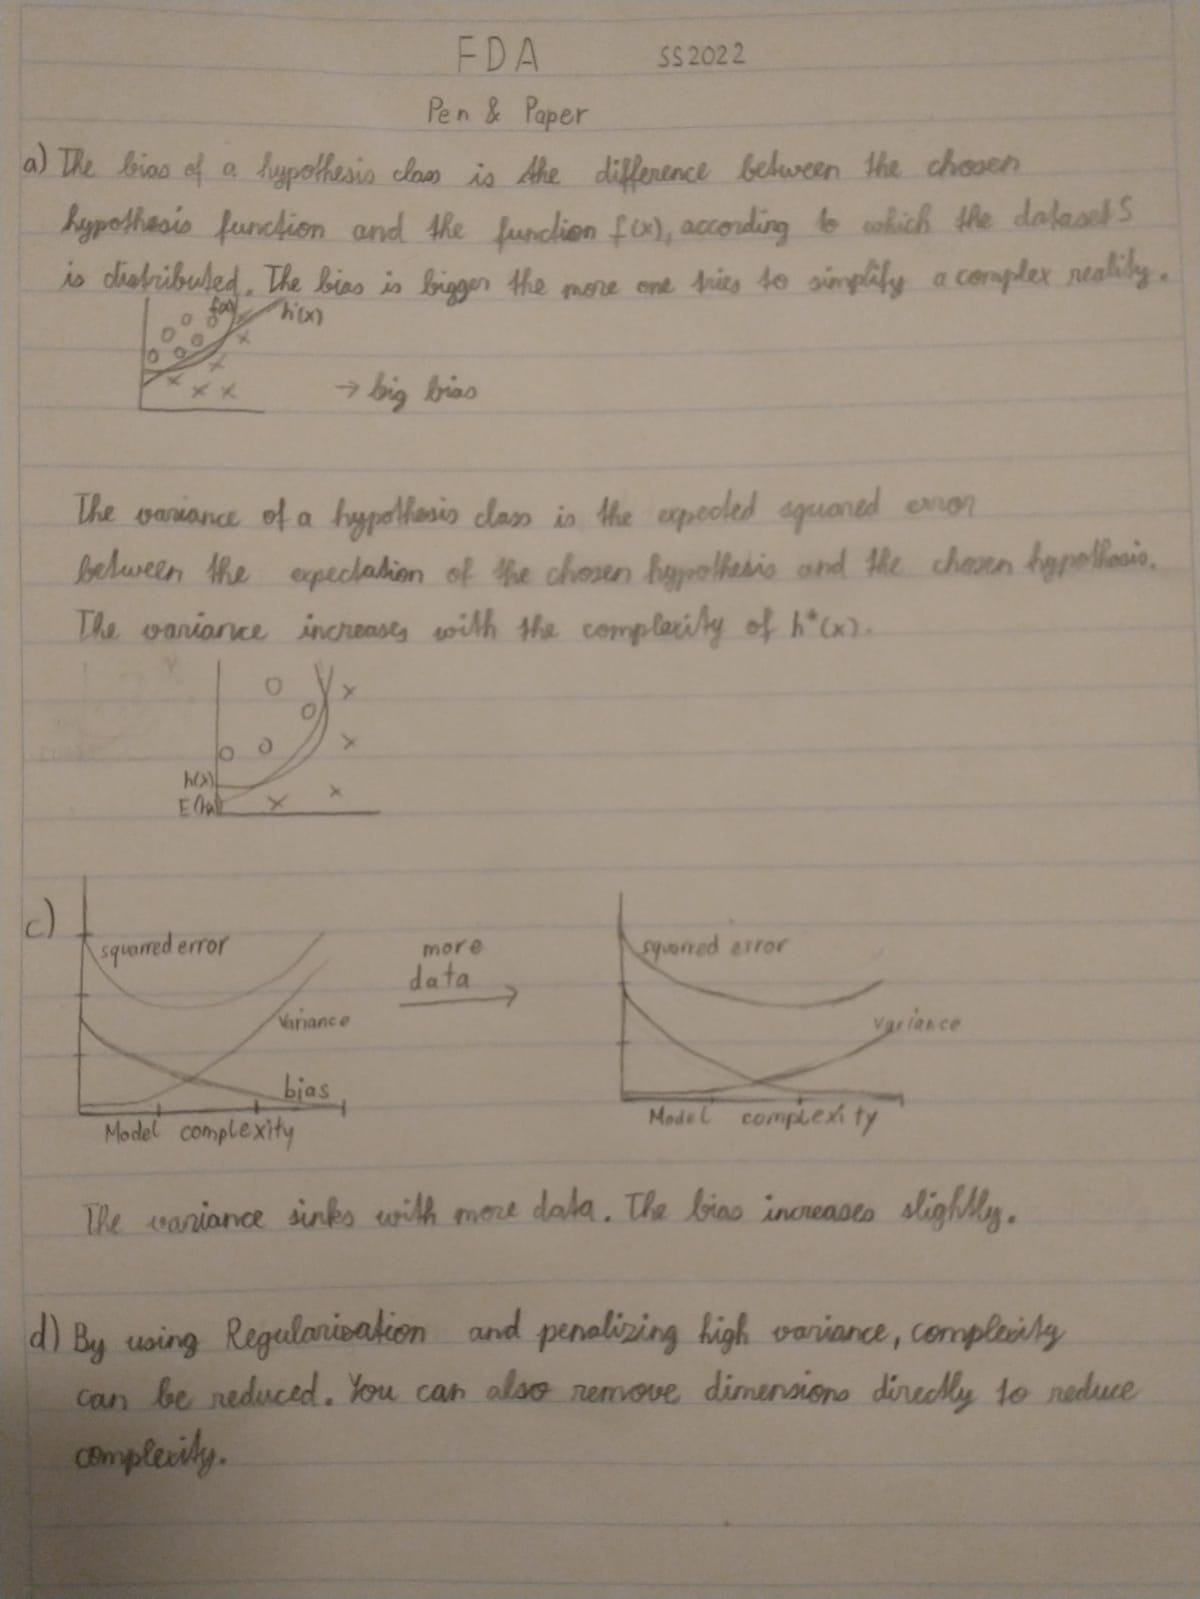 FDA SS2022
Pen & Paper
a) The bias of a hypothesis class is the difference between the chosen
hypothesis function and the function f(x), according to which the dataset S
is distributed. The bias is bigger the more one tries to simplify a complex reality.
f(x) h(x)
→ big bias
The variance of a hypothesis class is the expected squared error
between the expectation of the chosen hypothesis and the chosen hypothesis.
The variance increases with the complexity of h*(x).
h(x)
c)
squarred error
more
data
squarred error
variance
variance
bias
Model complexity
Model complexity
The variance sinks with more data. The bias increases slightly.
d) By using Regularisation and penalizing high variance, complexity
can be reduced. You can also remove dimensions directly to reduce
complexity.